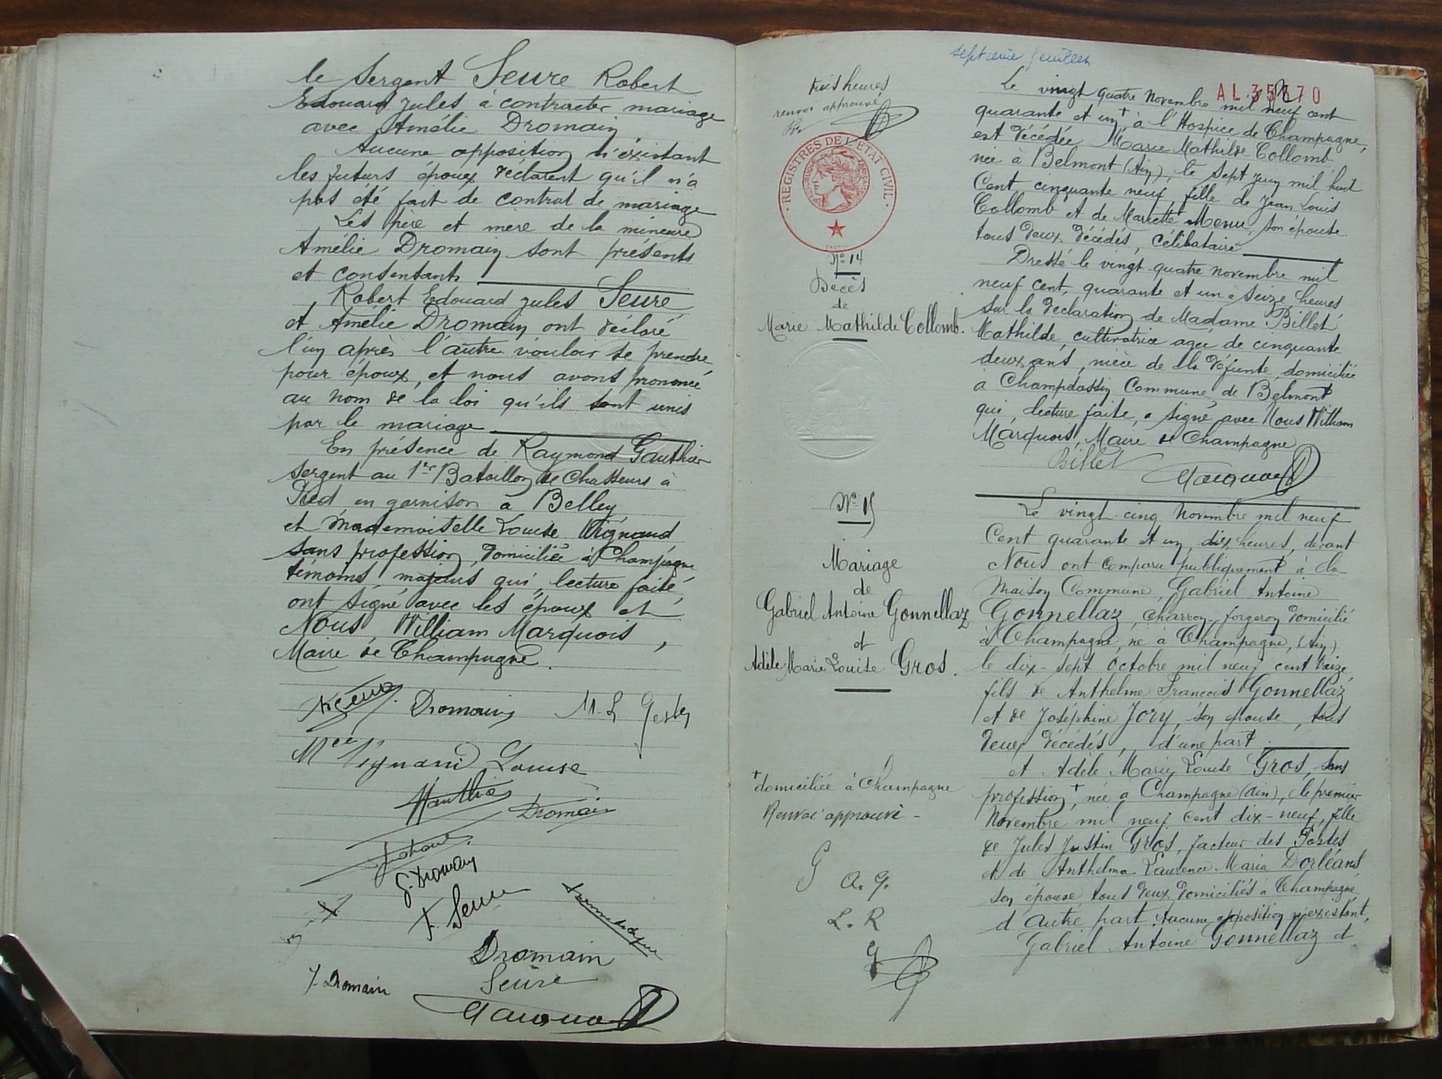 le Sergent Seure Robert
Edouard Jules à contracter mariage
avec Amélie Dromain.
Aucune opposition n'éxistant
les futurs époux déclarent qu'il n'a
pas été fait de contrat de mariage
Les père et mère de la mineure
Amélie Dromain sont présents
et consentants
Robert Edouard Jules Seure
et Amélie Dromain ont déclaré
l'un après l'autre vouloir se prendre
pour époux, et nous avons prononcé
au nom de la loi qu'ils sont unis
par le mariage
En présence de Raymond Gauthier
sergent au 1er Bataillon de Chasseurs à
Pied en garnison à Belley
et Mademoiselle Louise Vignand
sans profession, domiciliée à Champagne
témoins majeurs qui, lecture faite,
ont signé avec les époux et
Nous William Marquois,
Maire de Champagne.
Dromain
Louise
Dromain
Dromain
Seure
Dromain
Seure
J. Dromain
Septième feuillet
AL 35
70
trois heures
renvoi approuvé
REGISTRES DE L'ÉTAT CIVIL
N° 14
Décès
de
Marie Mathilde Collomb.
Le vingt quatre Novembre mil neuf cent
quarante et un à l'Hospice de Champagne,
est décédée Marie Mathilde Collomb
née à Belmont (Ain), le sept Juin mil huit
Cent cinquante neuf fille de Jean Louis
Collomb et de Mariette Menu, son épouse
tous deux décédés, célibataire
Dressé le vingt quatre novembre mil
neuf cent quarante et un à seize heures
sur la déclaration de Madame Billet
Mathilde, cultivatrice agée de cinquante
deux ans, nièce de la défunte, domiciliée
à Commune de Belmont
qui, lecture faite, a signé avec Nous William
Marquois, Maire de Champagne
Billet
N° 15
Mariage
de
Gabriel Antoine Gonnellaz
et
Adèle Marie Louise Gros.
Le vingt-cinq Novembre mil neuf
Cent quarante et un, dix heures, devant
Nous ont comparu publiquement à la
Maison Commune, Gabriel Antoine
Gonnellaz, charron forgeron domicilié
à Champagne, né à Champagne, (Ain)
le dix-sept octobre mil neuf cent treize,
fils de Anthelme François Gonnellaz
et de Joséphine Jory, son épouse, tous
deux décédés, d'une part
et Adèle Marie Louise Gros, sans
profession+, née à Champagne (Ain), le premier
Novembre mil neuf cent dix-neuf, fille
de Jules Justin Gros, facteur des Postes
et de Anthelma Laurence Maria Dorléans
son épouse tous deux domiciliés à Champagne
d'autre part. Aucune opposition n'existant,
Gabriel Antoine Gonnellaz et
+ domiciliée à Champagne
Renvoi approuvé -
G A. G.
L. R